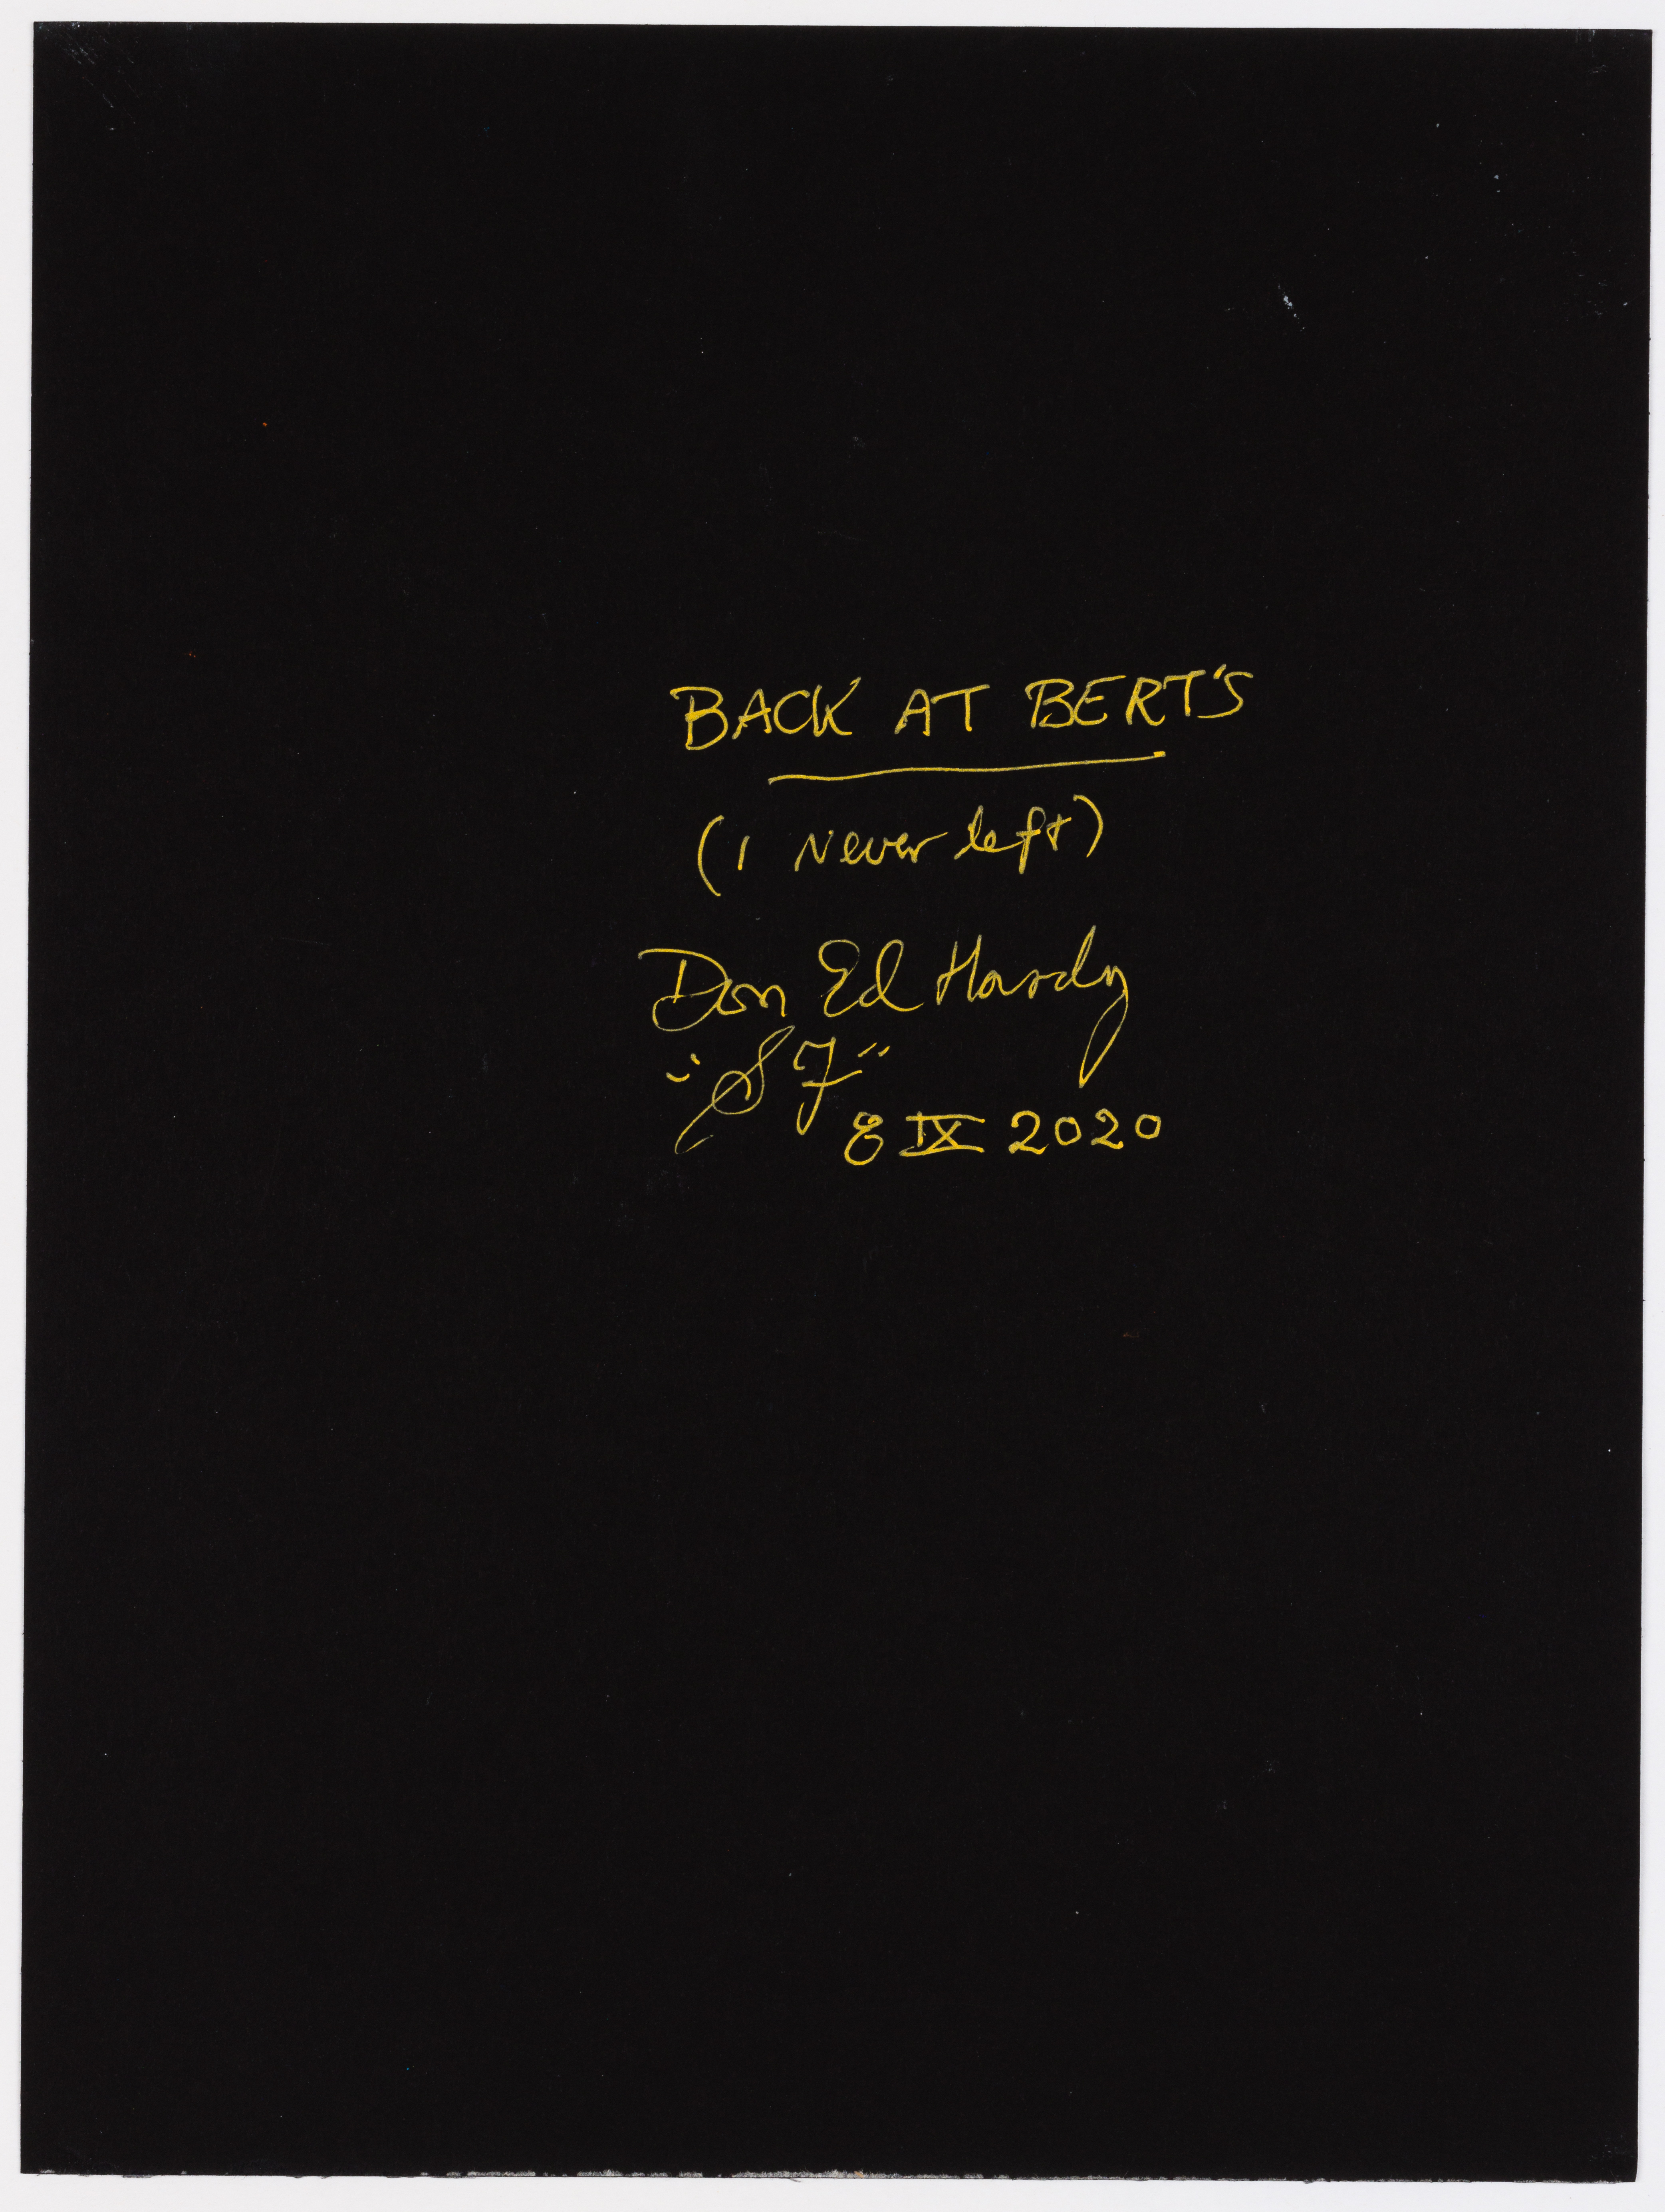 BACK AT BERT'S
(I Never left)
Don Ed Hardy
"SF"
8 IX 2020